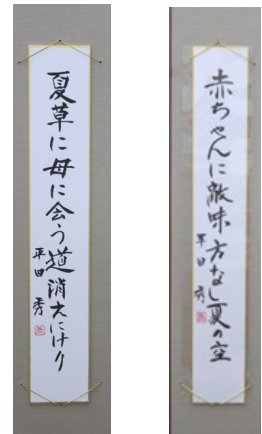 夏草に母に会う道消えにけり
平田 秀
赤ちゃんに敵味方なし夏の空
平田 秀